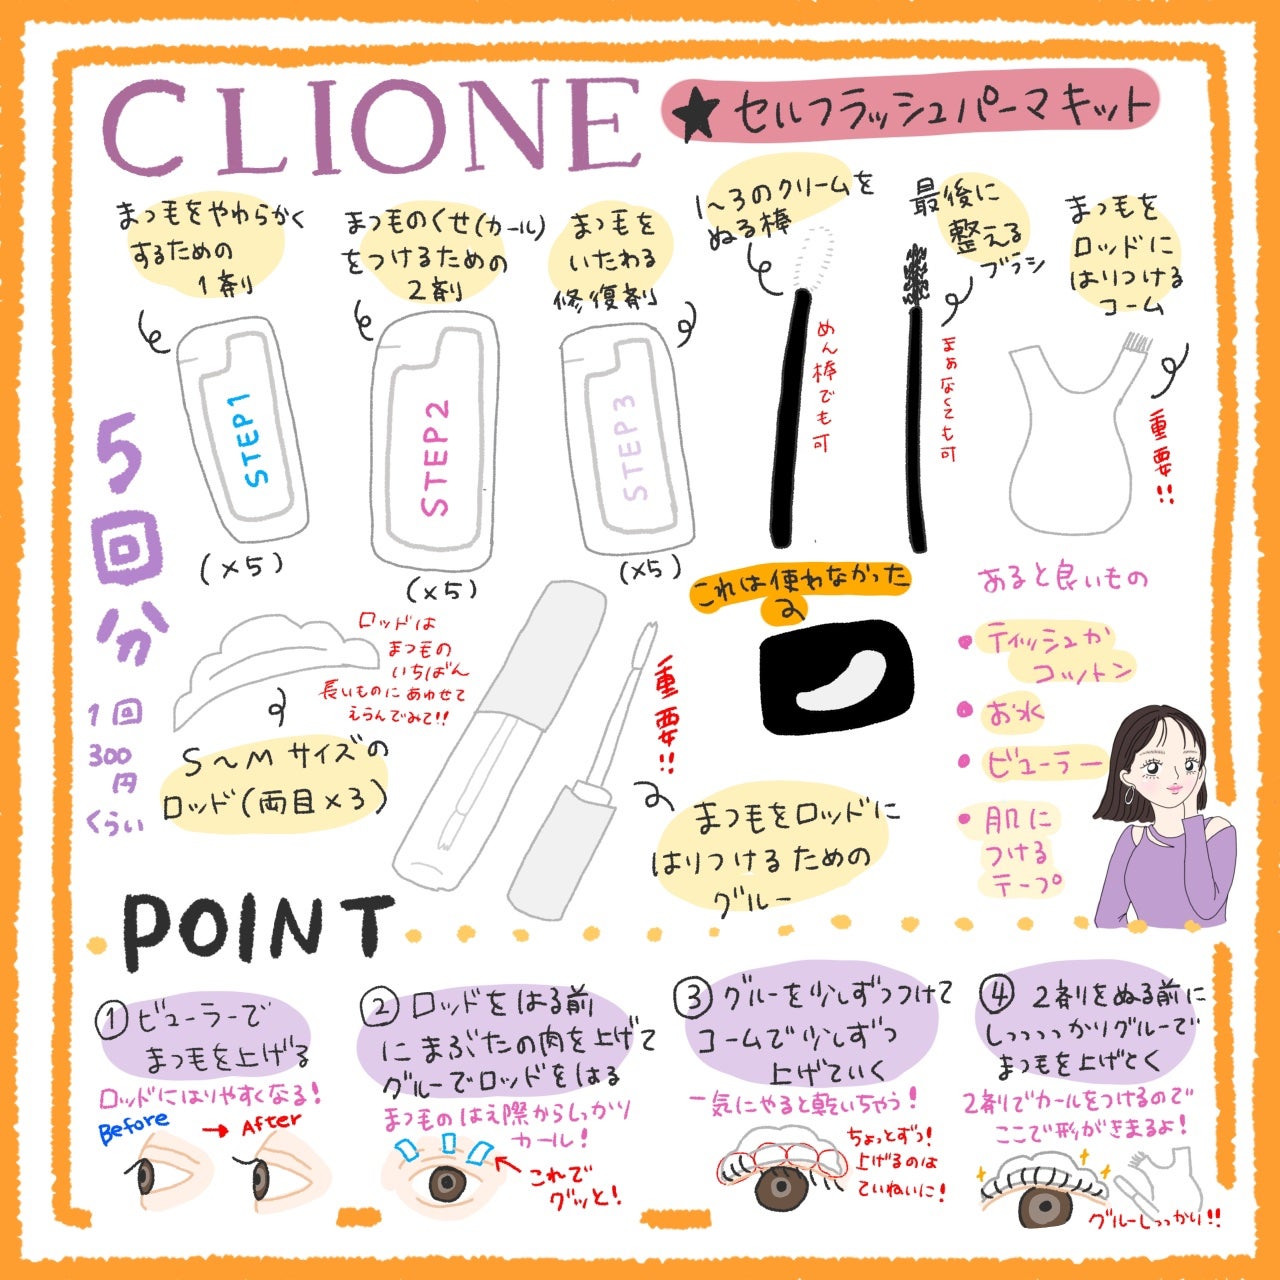 CLIONE
★セルフラッシュパーマキット
まつ毛をやわらかく
するための
1剤
まつものくせ(カール)
をつけるための
2剤
まつ毛を
いたわる
修復剤
1〜3のクリームを
ぬる棒
めん棒でも可
最後に
整える
ブラシ
まぁなくても可
まつ毛を
ロッドに
はりつける
コーム
重要!!
STEP1
(×5)
STEP2
(×5)
STEP3
(×5)
5回分
1回
300
円
くらい
ロッドは
まつ毛の
いちばん
長いものにあわせて
えらんでみて!!
S〜Mサイズの
ロッド(両目×3)
重要!!
まつ毛をロッドに
はりつけるための
グルー
これは使わなかった
あると良いもの
・ティッシュか
コットン
・お水
・ビューラー
・肌に
つける
テープ
POINT
①ビューラーで
まつ毛を上げる
ロッドにはりやすくなる!
Before
→After
②ロッドをはる前
にまぶたの肉を上げて
グルーでロッドをはる
まつものはえ際からしっかり
カール!
これで
グッと!
③グルーを少しずつつけて
コームで少しずつ
上げていく
一気にやると乾いちゃう!
ちょっとずつ!
上げるのは
ていねいに!
④2剤をぬる前に
しっっっっかりグルーで
まつ毛を上げとく
2剤でカールをつけるので
ここで形がきまるよ!
グルーしっっかり!!